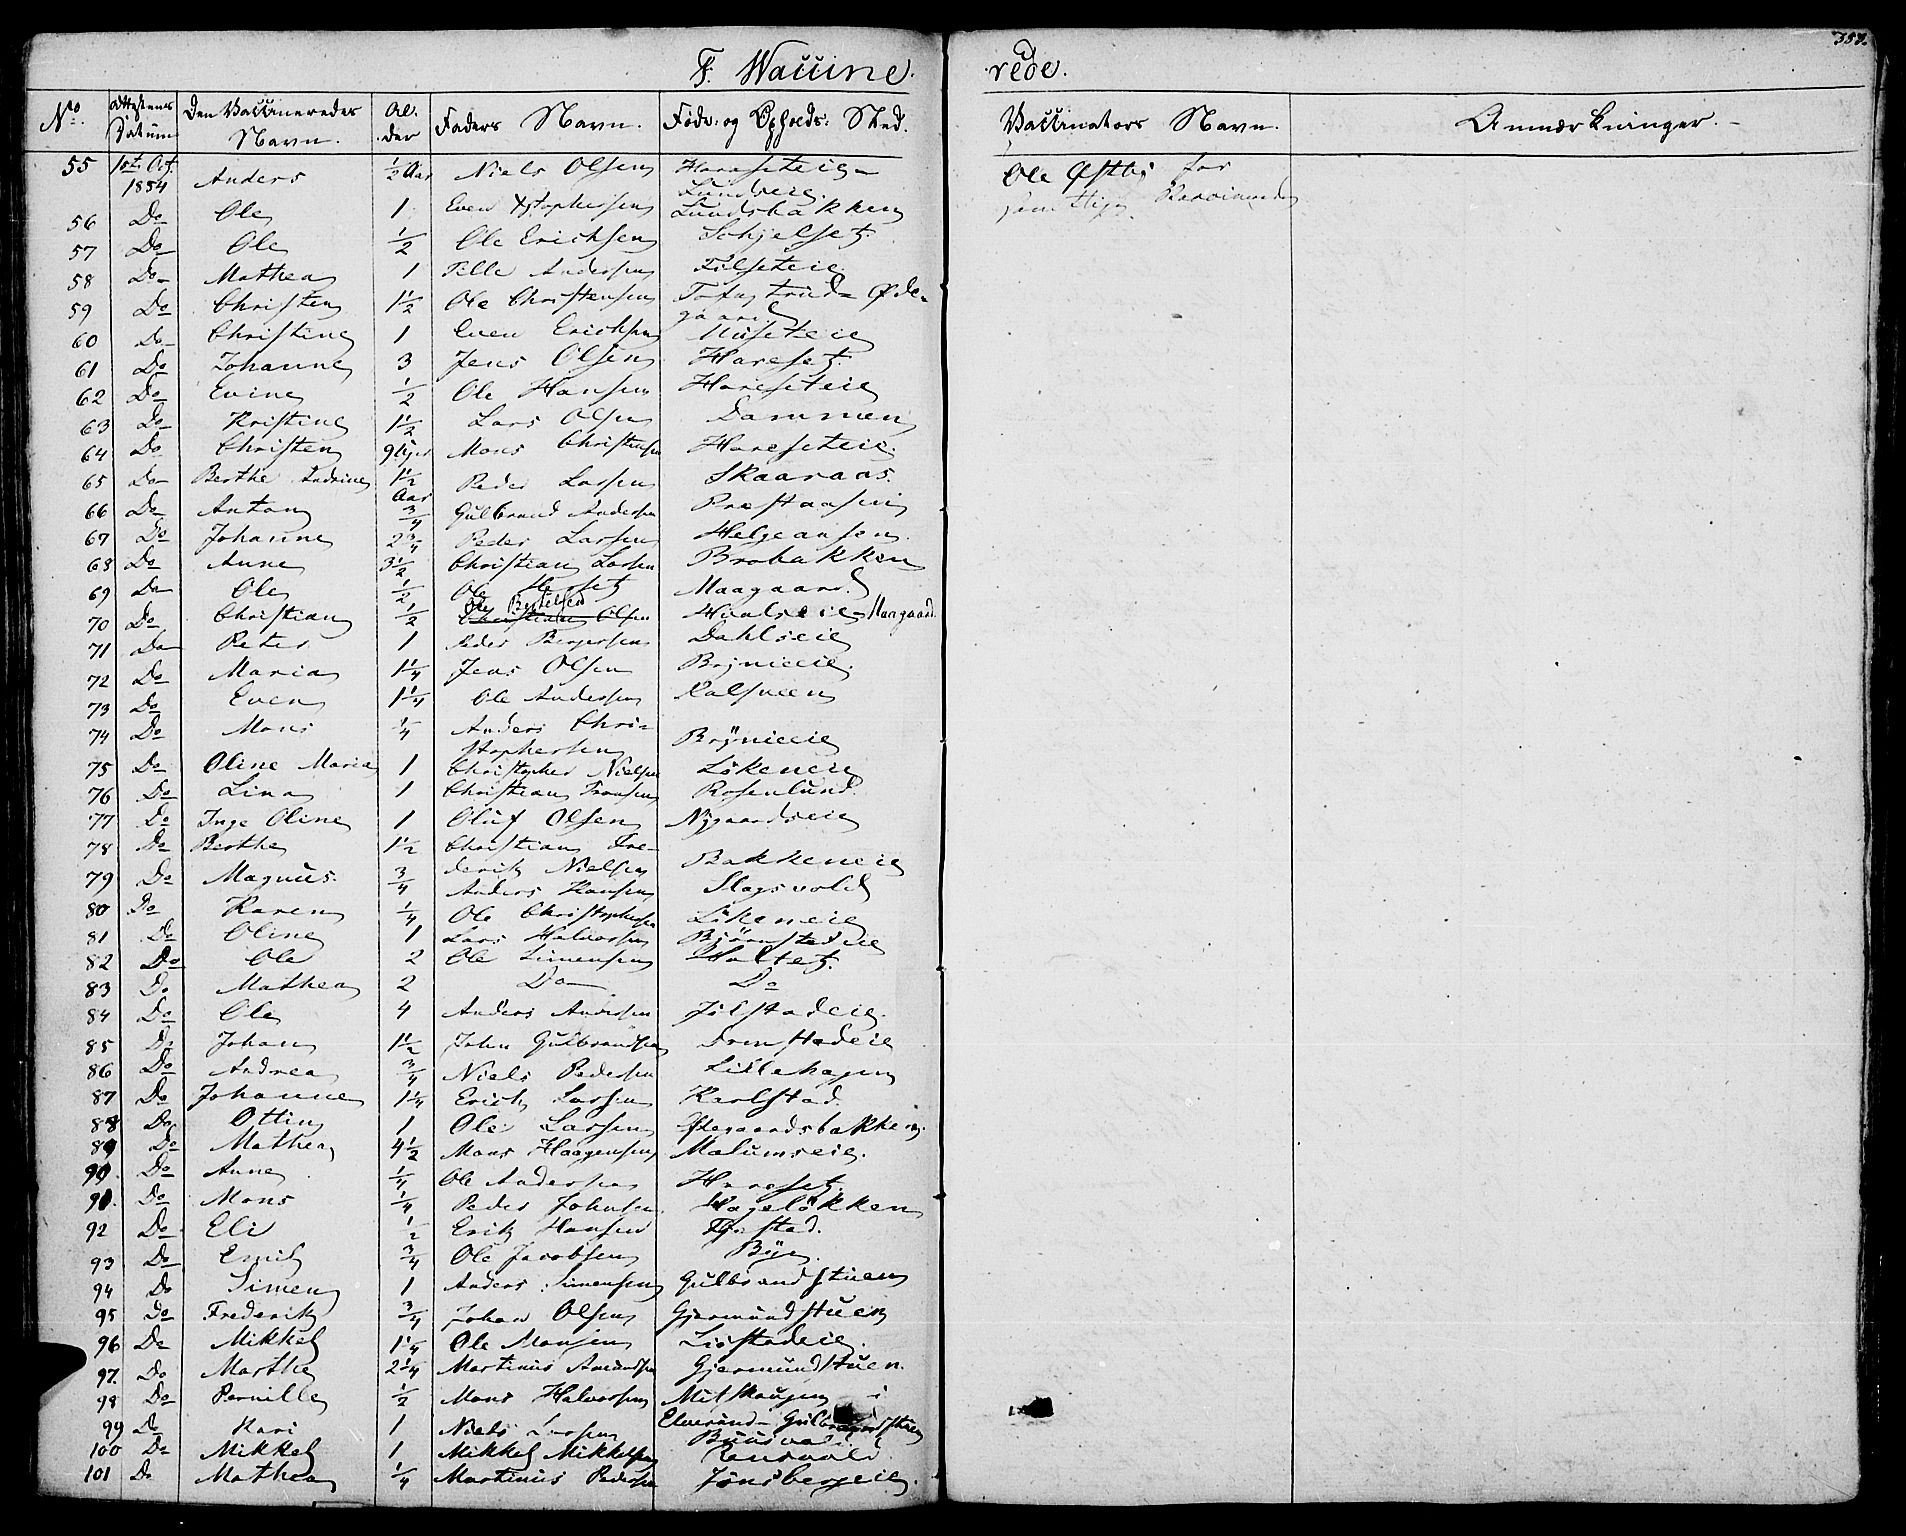 F. Vaccine
rede.
357.
No. Attestens Datum Den Vaccineredes Navn. Al- der Faders Navn. Føde- og Opholds- Sted. Vaccinators Navn. Anmærkninger.
55 1ste Oct. 1854 Anders ½ Aar Niels Olsen Haraseteie Lundbeie. Ole Østby for
56 Do Ole 1 Even Xstophersen Lundsbakken
57 Do Ole ½ Ole Erichsen Schjelset.
58 Do Mathea 1 Andersen
59 Do Christen 1½ Ole Christensen Tofastrud- Øde- gaard
60 Do Christine 1 Even Erichsen
61 Do Johanne 3 Jens Olsen Hareset.
62 Do Evine ½ Ole Hansen Hareseteie
63 Do Kristine 1½ Lars Olsen Dammen
64 Do Christen 9 Uger Mons Christensen Hareseteie.
65 Do Berthe Andrine 1½ Aar Peder Larsen Skaaraas.
66 Do Anton ¾ Gulbrand Andersen Prestaasen
67 Do Johanne 2¾ Peder Larsen Helgeaasen.
68 Do Anne 3½ Christian Larsen Brobakken
69 Do Ole ½ Ole Maagaard.
70 Do Christian ½ Ole Bertelsen Christian Olsen Maagaard.
71 Do Peter 1 Peder Bergersen Dahlseie
72 Do Maria 1¼ Jens Olsen Brynieeie.
73 Do Even 1¼ Ole Andersen Kalsveen
74 Do Mons ¼ Anders Chri- stophersen Brynieeie
75 Do Oline Maria 1 Christopher Nielsen Lökeneie
76 Do Lina 1 Christian Fransen Rosenlund.
77 Do Inge Oline 1 Oluf Olsen Nygaardseie
78 Do Berthe 1½ Christian Fre- derik Nielsen Bakkeneie
79 Do Magnus. ¾ Anders Hansen Slagsvold
80 Do Karen ¼ Ole Christophersen Lökeneie
81 Do Oline 1 Lars Halvorsen Björnstadeie
82 Do Ole 2 Ole Simensen Holtet.
83 Do Mathea 2 Do Do
84 Do Ole 4 Anders Andersen Jölstadeie.
85 Do Johan 1½ John Gulbrandsen
86 Do Andrea ¾ Niels Pedersen Lillehagen
87 Do Johanne 1¼ Erich Larsen Karlstad.
88 Do Ottin 1 Ole Larsen
89 Do Mathea 4½ Mons Haagensen Malumseie.
90. Do Anne ¼ Ole Andersen Hareset.
91. Do Mons ¼ Peder Johnsen Hagelökken
92 Do Eli ½ Erik Hansen
93 Do Emil ¾ Ole Jacobsen Bye.
94 Do Simen 1 Anders Simensen Gulbrandstuen
95 Do Frederik ¾ Johan Olsen Gjermundstuen
96 Do Mikkel 1¼ Ole Monsen
97. Do Marthe 2¼ Martinus Amundsen Gjermundstuen.
98 Do Pernille ½ Mons Halvorsen Mitskougen i
99 Do Kari 1 Niels Larsen Elverund- Gulbrandstuen
100 Do Mikkel 1 Mikkel Mikkelsen
101 Do Mathea ¼ Martinus Pedersen Jönsbergeie.